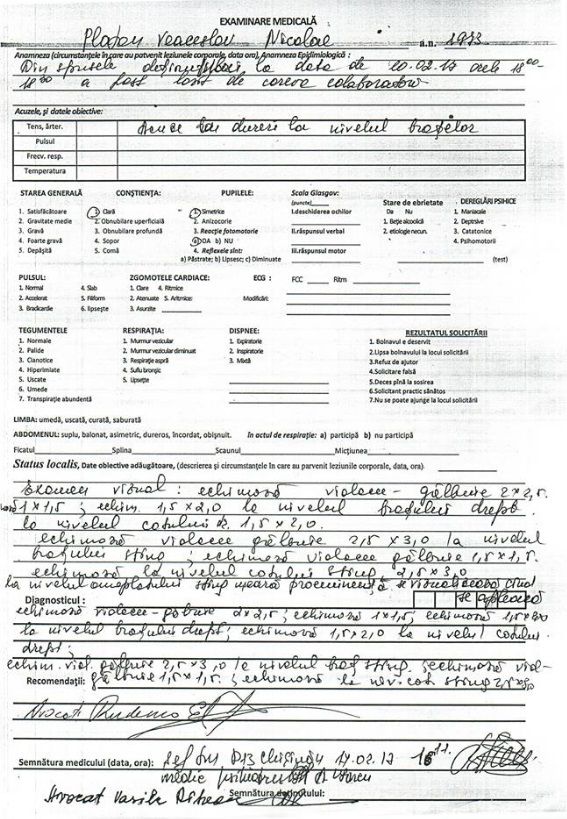 EXAMINARE MEDICALĂ
Platon Veaceslav Nicolae a.n. 1973
Anamneza (circumstanțele în care au parvenit leziunele corporale, data ora), Anamneza Epidimiologică :
Din spusele deținutului la data de 10.02.17 orele 18 00-
18 30 a fost de careva colaboratori
Acuzele, și datele obiective:
Tens, ărter. Acuze la dureri la nivelul brațelor
Pulsul
Frecv. resp.
Temperatura
STAREA GENERALĂ CONȘTIENȚA: PUPILELE: Scala Glasgov: Stare de ebrietate DEREGLĂRI PSIHICE
(puncte) Da Nu
1. Satisfăcătoare 1. Clară 1. Simetrice I.deschiderea ochilor 1. Beție alcoolică 1. Maniacale
2. Gravitate medie 2. Obnubilare uperficială 2. Anizocorie 2. etiologie necun. 2. Deptsive
3. Gravă 3. Obnubilare profundă 3. Reacție fotomotorie II.răspunsul verbal 3. Catatonice
4. Foarte gravă 4. Sopor a) DA b) NU 4. Psihomotorii
5. Depășită 5. Comă 4. Reflexele sintr III.răspunsul motor
a) Păstrate; b) Lipsesc; c) Diminuate (test)
PULSUL: ZGOMOTELE CARDIACE: ECG : FCC Ritm
1. Normal 4. Slab 1. Clare 4. Ritmice
2. Accelerat 5. Filiform 2. Atenuate 5. Aritmice: Modificări:
3. Bradicardie 6. lipsește 3. Asurzite
TEGUMENTELE RESPIRAȚIA: DISPNEE: REZULTATUL SOLICITĂRII
1. Normale 1. Murmur vezicular 1. Expiratorie 1. Bolnavul e deservit
2. Palide 2. Murmur vezicular diminuat 2. Inspiratorie 2.Lipsa bolnavului la locul solicitării
3. Cianotice 3. Respirație aspră 3. Mixtă 3.Refuz de ajutor
4. Hiperimiate 4. Suflu bronșic 4.Solicitare falsă
5. Uscate 5. Lipsește 5.Deces pînă la sosirea
6. Umede 6.Solicitant practic sănătos
7. Transpirație abundentă 7.Nu se poate ajunge la locul solicitării
LIMBA: umedă, uscată, curată, saburată
ABDOMENUL: suplu, balonat, asimetric, dureros, încordat, obișnuit. în actul de respirație: a) participă b) nu participă
Ficatul Splina Scaunul Micțiunea
Status localis, Date obiective adăugătoare, (descrierea și circumstanțele în care au parvenit leziunile corporale, data, ora)
Examen vizual : echimoză violacee - gălbuie 2x2,5.
1x1,5 ; echim. 1,5 x2,0 la nivelul brațului drept.
la nivelul cotului dr. 1,5 x 2,0.
echimoză violacee gălbuie 2,5 x3,0 la nivelul
brațului stîng ; echimoză violacee gălbuie 1,5x1,5.
echimoză la nivelul cotului stîng 2,5x3,0
la nivelul omoplatului stîng
Diagnosticul :
echimoză violacee-gălbuie 2x2,5; echimoză 1x1,5; echimoză 1,5x2,0
la nivelul brațului drept; echimoză 1,5x2,0 la nivelul cotului
drept;
echim. viol. gălbuie 2,5x3,0 la nivelul braț stîng. echimoză viol-
Recomandații: gălbuie 1,5x1,5. ; echimoză la niv. cot stîng 2,5x3,0
Avocat Rudenco
Semnătura medicului (data, ora): Chișinău 14.02.17 16 11
medic
Avocat Vasile Semnătura deținutului: